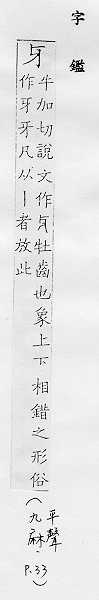 字鑑
牙
牛加切說文作牡齒也象上下相錯之形俗
作牙牙凡从丨者放此
(平聲
九麻.
P.33)